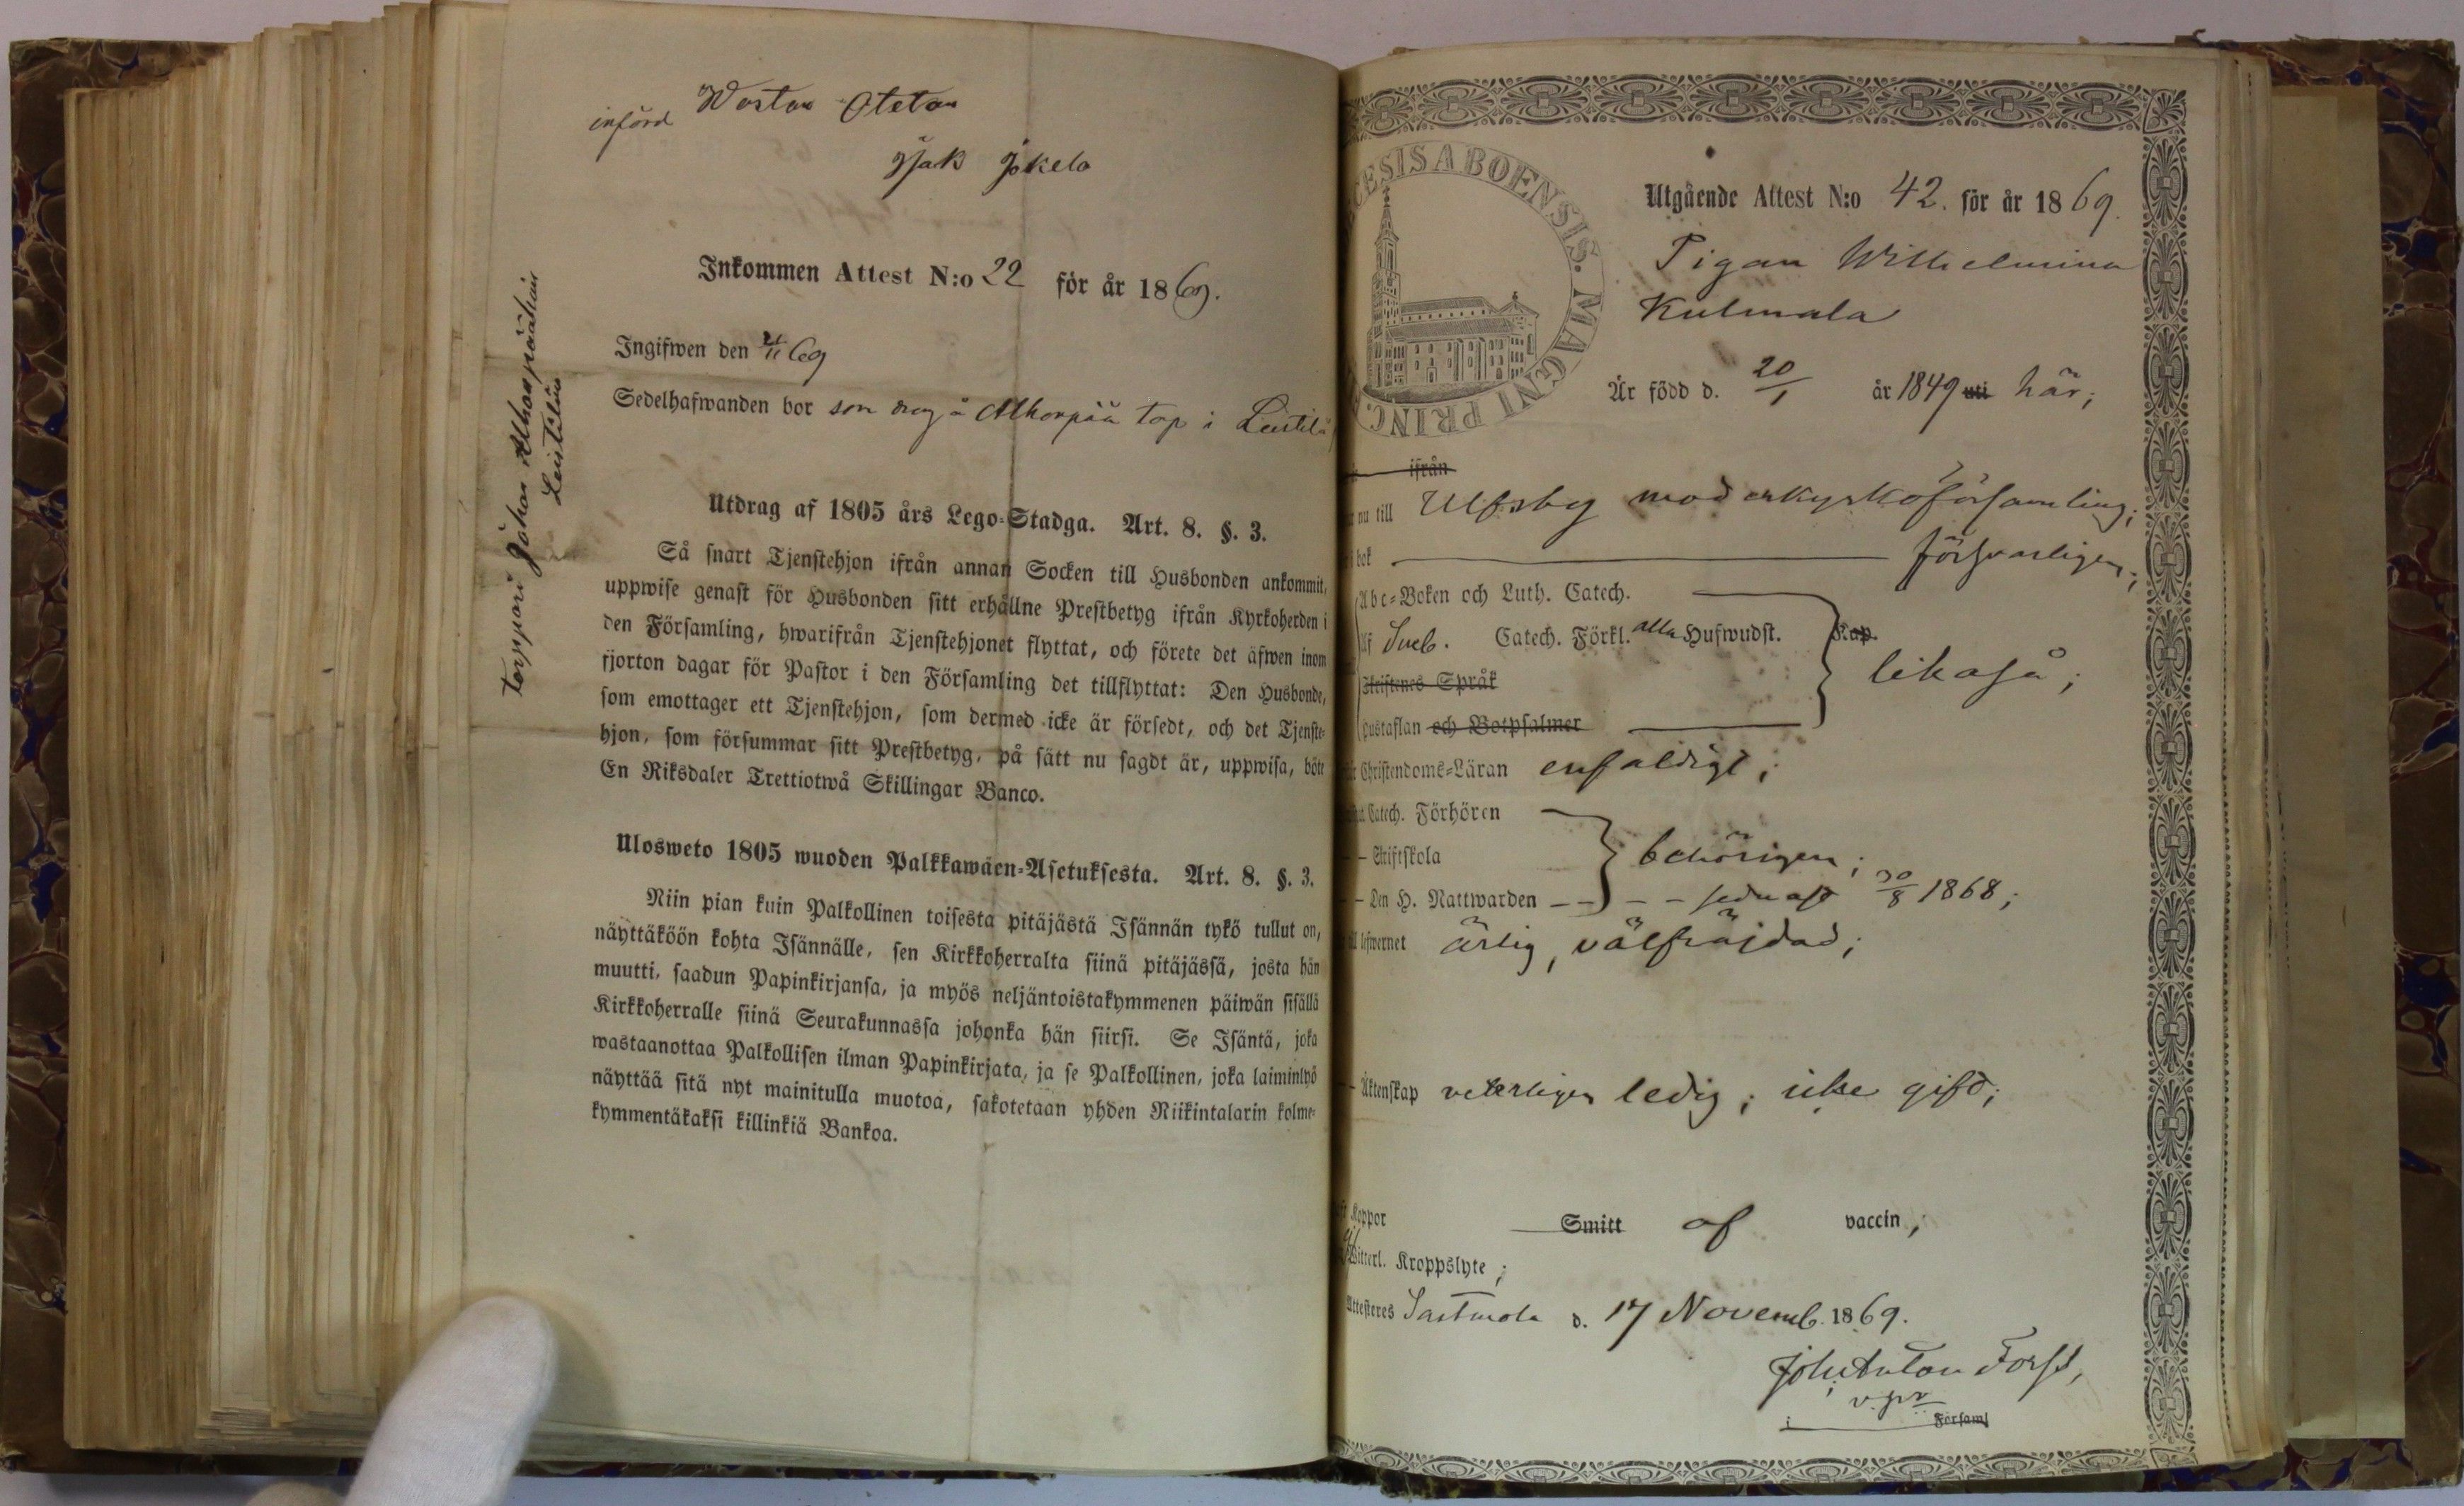 införd Wastan Otetan
Isak Jokela
Inkommen Attest N:o 22 för år 1869.
Ingifwen den 21/11 69
Sedelhafwanden bor som drag å Alhonpää torp i Leistilä
torppari Johan Alhonpäähän
Leistilän
Utdrag af 1805 års Lego-Stadga. Art. 8. §. 3.
Så snart Tjenstehjon ifrån annan Socken till Husbonden ankommit,
uppwise genast för Husbonden sitt erhållne Prestbetyg ifrån Kyrkoherden i
den Församling, hwarifrån Tjenstehjonet flyttat, och förete det äfwen inom
fjorton dagar för Pastor i den Församling det tillflyttat: Den Husbonde,
som emottager ett Tjenstehjon, som dermed icke är försedt, och det Tjenste-
hjon, som försummar sitt Prestbetyg, på sätt nu sagdt är, uppwisa, böte
En Riksdaler Trettiotwå Skillingar Banco.
Ulosweto 1805 wuoden Palkkawäen-Asetuksesta. Art. 8. §. 3.
Niin pian kuin Palkollinen toisesta pitäjästä Isännän tykö tullut on,
näyttäköön kohta Isännälle, sen Kirkkoherralta siinä pitäjässä, josta hän
muutti, saadun Papinkirjansa, ja myös neljäntoistakymmenen päiwän sisällä
Kirkkoherralle siinä Seurakunnassa johonka hän siirsi. Se Isäntä, joka
wastaanottaa Palkollisen ilman Papinkirjata, ja se Palkollinen, joka laiminlyö
näyttää sitä nyt mainitulla muotoa, sakotetaan yhden Riikintalarin kolme-
kymmentäkaksi killinkiä Bankoa.
CESIS ABOENSIS. MAGNI PRINC.
Utgående Attest N:o 42. för år 1869.
Pigan Wilhelmina
Kulmala
Är född d. 20/1 år 1849 uti här;
ifrån
nu till Ulfsby moderkyrkoförsamling;
i bok försvarligen;
Abc-Boken och Luth. Catech.
af Sveb. Catech. Förkl. alla Hufwudst. Kap.
likaså;
Skriftenes Språk
Hustaflan och Botpsalmer
Christendoms-Läran enfaldigt;
Catech. Förhören
– Skriftskola behörigen;
– Den H. Nattwarden – – – – sednast 30/8 1868;
till lefwernet ärlig, välfräjdad;
– Äktenskap veterligen ledig; icke gift;
Koppor Smitt af vaccin;
Witterl. Kroppslyte;
Attesteres Sastmola d. 17 Novemb. 1869.
Joh. Anton Forss,
v. pr
i Församl